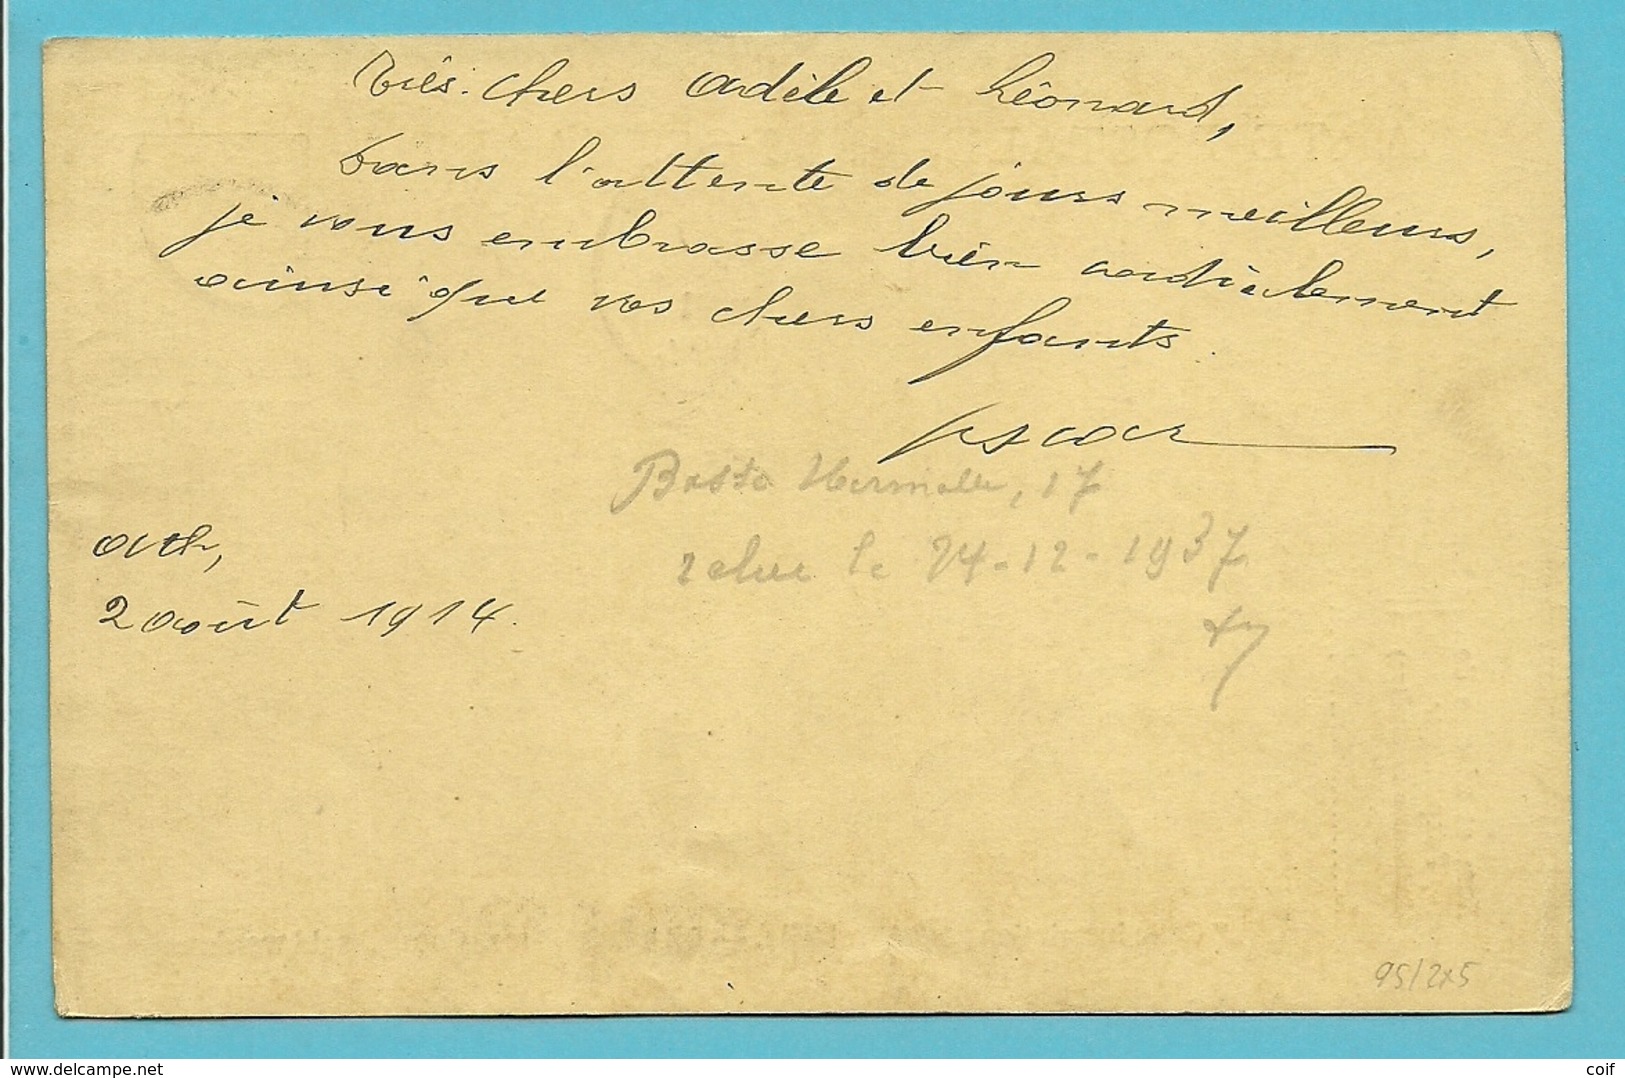 Très chers Adèle et Léonard,
Dans l'attente de jours meilleurs,
je vous embrasse bien cordialement
ainsi que vos chers enfants.
Oscar
Ath,
2 août 1914.
17
le 24-12-1937
95/2x5
© www.delcampe.net
coif